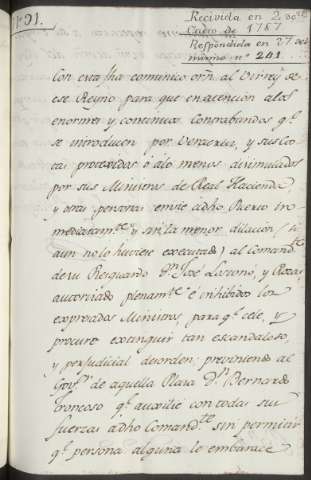 191.
Recivida en 2 de
Enero de 1787
Respondida en 27 del
mismo nº 241
Con esta fha comunico orn. al Virrey de
ese Reyno para que en atencion a los
enormes y continuos Contrabandos q.e
se introducen por Veracruz, y sus Cos
tas protexidos ó alo menos disimulados
por sus Ministros de Real Hacienda,
y otras personas envie adho Puerto in
mediatam.te y sin la menor dilacion (si
aun no lo huviere executado) al Comand.te
de su Resguardo D.n Jose Lozano, y Rozas
autorizado plenam.te é inhibidos los
expresados Ministros para q.e cele, y
procure extinguir tan escandaloso,
y perjudicial desorden; previniendo al
Gov.r de aquella Plaza D.n Bernardo
troncoso q.e auxilie con todas sus
fuerzas adho Comand.te sin permitir
q.e persona alguna le embarace